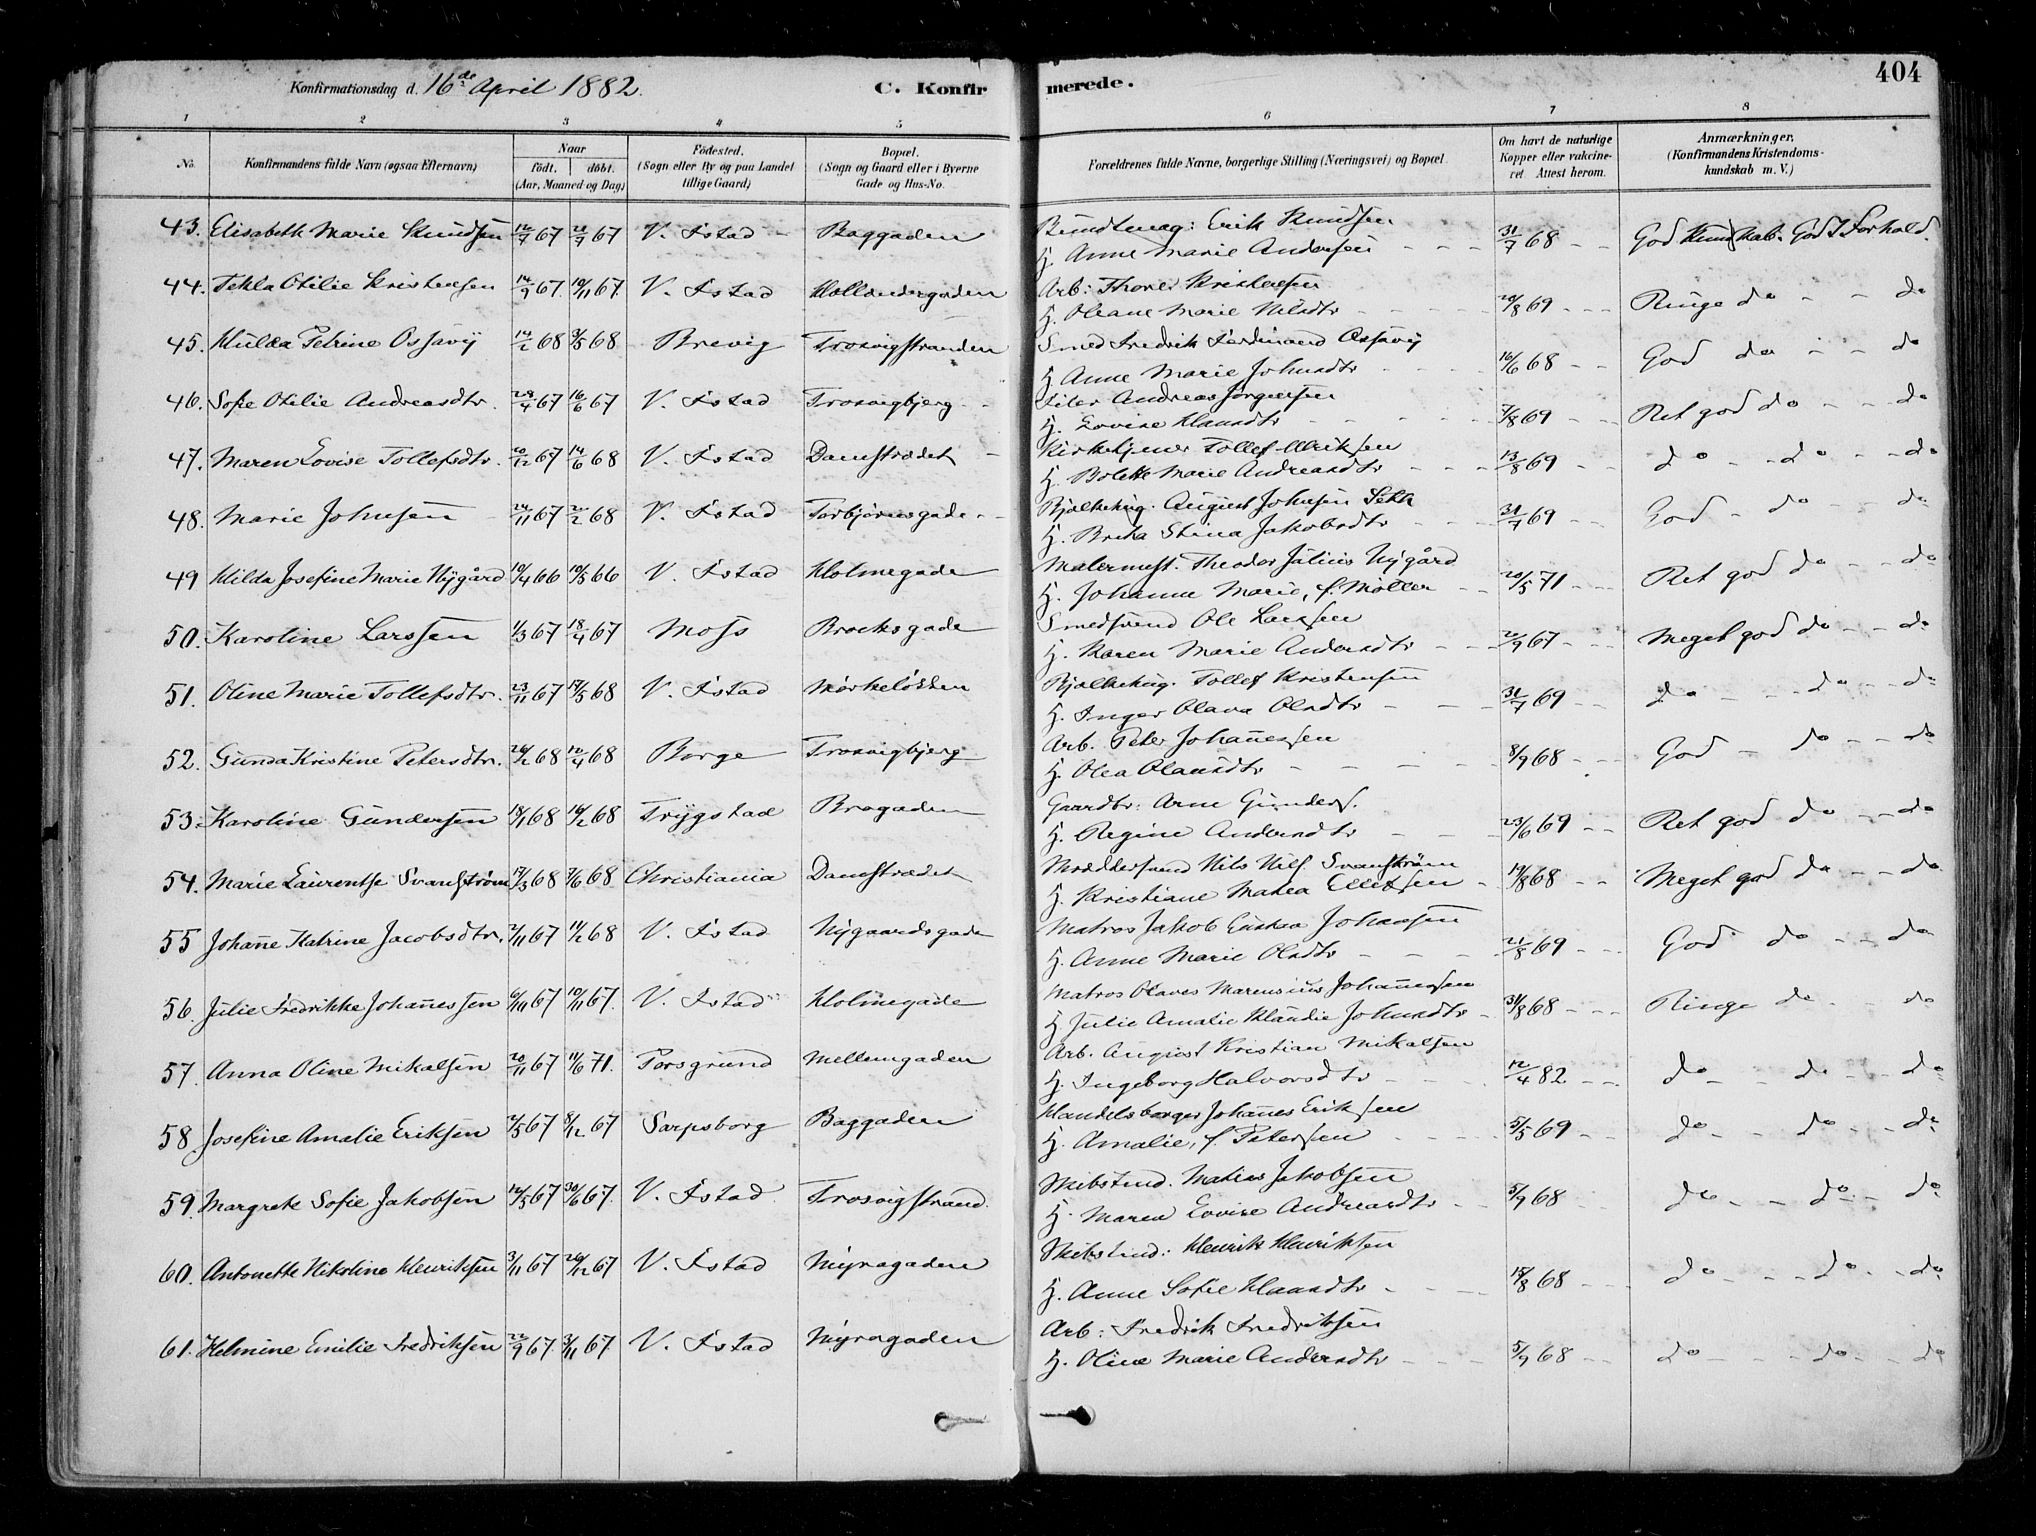 Konfirmationsdag d. 16de April 1882.
C. Konfirmerede.
404
1 2 3 4 5 6 7 8
No. Konfirmandens fulde Navn (ogsaa Efternavn) Naar født. døbt. (Aar, Maaned og Dag) Fødested. (Sogn eller By og paa Landet tillige Gaard) Bopæl. (Sogn og Gaard eller i Byerne Gade og Hus-No. Forældrenes fulde Navne, borgerlige Stilling (Næringsvei) og Bopæl. Om havt de naturlige Kopper eller vakcineret Attest herom. Anmærkninger. (Konfirmandens Kristendomskundskab m. V.)
43. Elisabeth Marie Knudsen 12/7 67 21/7 67 V. Fstad Baggaden Erik Knudsen
H. Anne Marie Andersen 31/7 68 God Kundskab. Godt Forhold.
44. Tekla Otilie Kristensen 14/9 67. 10/11 67. V. Fstad Hollændergaden Arb: Thorer Kristensen
H. Oleane Marie Nilsdtr 20/8 69 Ringe do do
45. Hulda Petrine Ossavy 14/2 68 3/5 68 Brevig Trosvigstranden Smed Fredrik Ferdinand Ossavy
H. Anne Marie Johnsdtr 16/6 68 God do do
46. Sofie Otilie Andreasdtr. 29/4 67 16/6 67 V. Fstad Trosvigbjerg Filer Andreas Jørgensen
H. Lovise Hansdtr 7/8 69 Ret god do do
47. Maren Lovise Tollefsdtr. 20/12 67 14/6 68 V. Fstad Damstrædet Kirketjener Tollef Ulriksen
H. Bolette Marie Andreasdtr 13/8 69 do do do
48. Marie Johnsen 24/11 67 2/2 68 V. Fstad Torbjørnsgade Bjelkehug. August Johnsen
H. Brita Stina Jakobsdtr 31/7 69 God do do
49 Hilda Josefine Marie Nygård 10/4 66 10/5 66 V. Fstad Holmegade Malermest. Theodor Julius Nygård
H. Johanne Marie, f. Møller 20/5 71 Ret god do do
50. Karoline Larssen 1/3 67 18/4 67 Moss Brochsgade Smedsvend Ole Larssen
H. Karen Marie Andersdtr 2/9 67 Meget god do do
51. Oline Marie Tollefsdtr. 23/11 67 17/5 68 V. Fstad Mørkeløkken Bjelkehug. Tollef Kristensen
H. Inger Olava Olsdtr 31/7 69 do do do
52. Gunda Kristine Petersdtr. 26/2 68 12/4 68 Borge Trosvigbjerg Arb. Peter Johannessen
H. Olea Olausdtr 8/9 68 God do do
53. Karoline Gundersen 18/1 68 16/2 68 Trygstad Brogaden Gaardbr: Arne Gunders.
H. Regine Andersdtr 23/6 69 Ret god do do
54. Marie Laurentse Svanstrøm 17/3 68 7/6 68 Christiania Damstrædet Nils Nils. Svanstrøm
H. Kristiane Mathea Ellefsen 14/8 68 Meget god do do
55 Johanne Katrine Jacobsdtr. 2/11 67 11/2 68 V. Fstad Nygaardsgade Matros Jakob Johansen
H. Anne Marie Olsdtr 21/8 69 God do do
56. Julie Fredrikke Johannessen 6/10 67 10/11 67. V. Fstad Holmegade Matros Olaves Marensius Johannessen
H. Julie Amalie Klaudie Johnsdtr 31/8 68 Ringe do do
57. Anna Oline Mikalsen 20/11 67 11/6 71. Porsgrund Mellemgaden Arb. August Kristian Mikalsen
H. Ingeborg Halvorsdtr 12/4 82 do do do
58 Josefine Amalie Eriksen 2/5 67 8/12 67 Sarpsborg Baggaden Handelsborger Johannes Eriksen
H. Amalie, f. Petersen 3/5 69 do do do
59. Margrete Sofie Jakobsen 12/5 67 30/6 67. V. Fstad. Trosvigstrand. Skibstmd. Matias Jakobsen
H. Maren Lovise Andreasdtr 5/9 68 do do do
60. Antonette Nikoline Henriksen 3/11 67 26/12 67 V. Fstad Myragaden Skibstmd: Henrik Henriksen
H. Anne Sofie Hansdtr 15/8 68 do do do
61. Helmine Emilie Fredriksen 22/9 67. 3/11 67. V. Fstad Myragaden Arb: Fredrik Fredriksen
H. Oline Marie Andersdtr 5/9 68 do do do